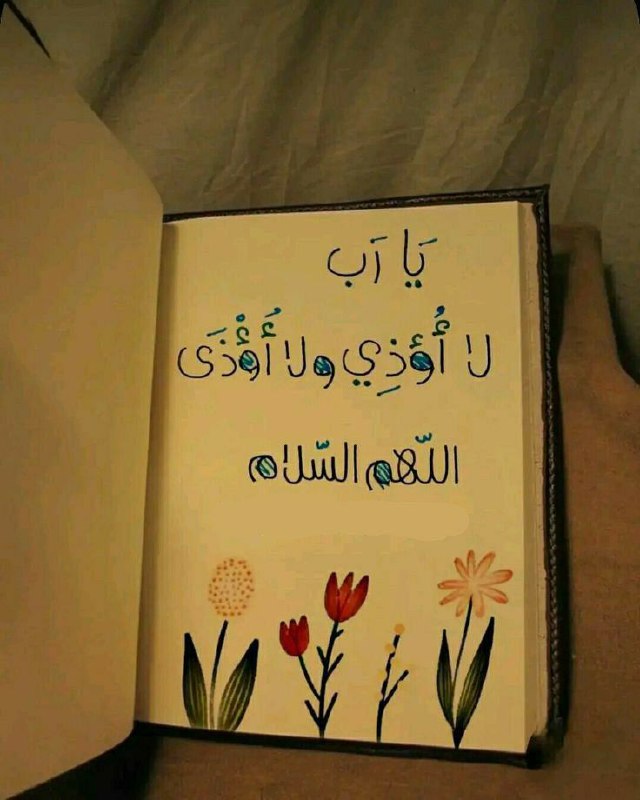 يَا رَب
لا أُؤذِي ولا أُؤْذَى
اللّهم السّلام